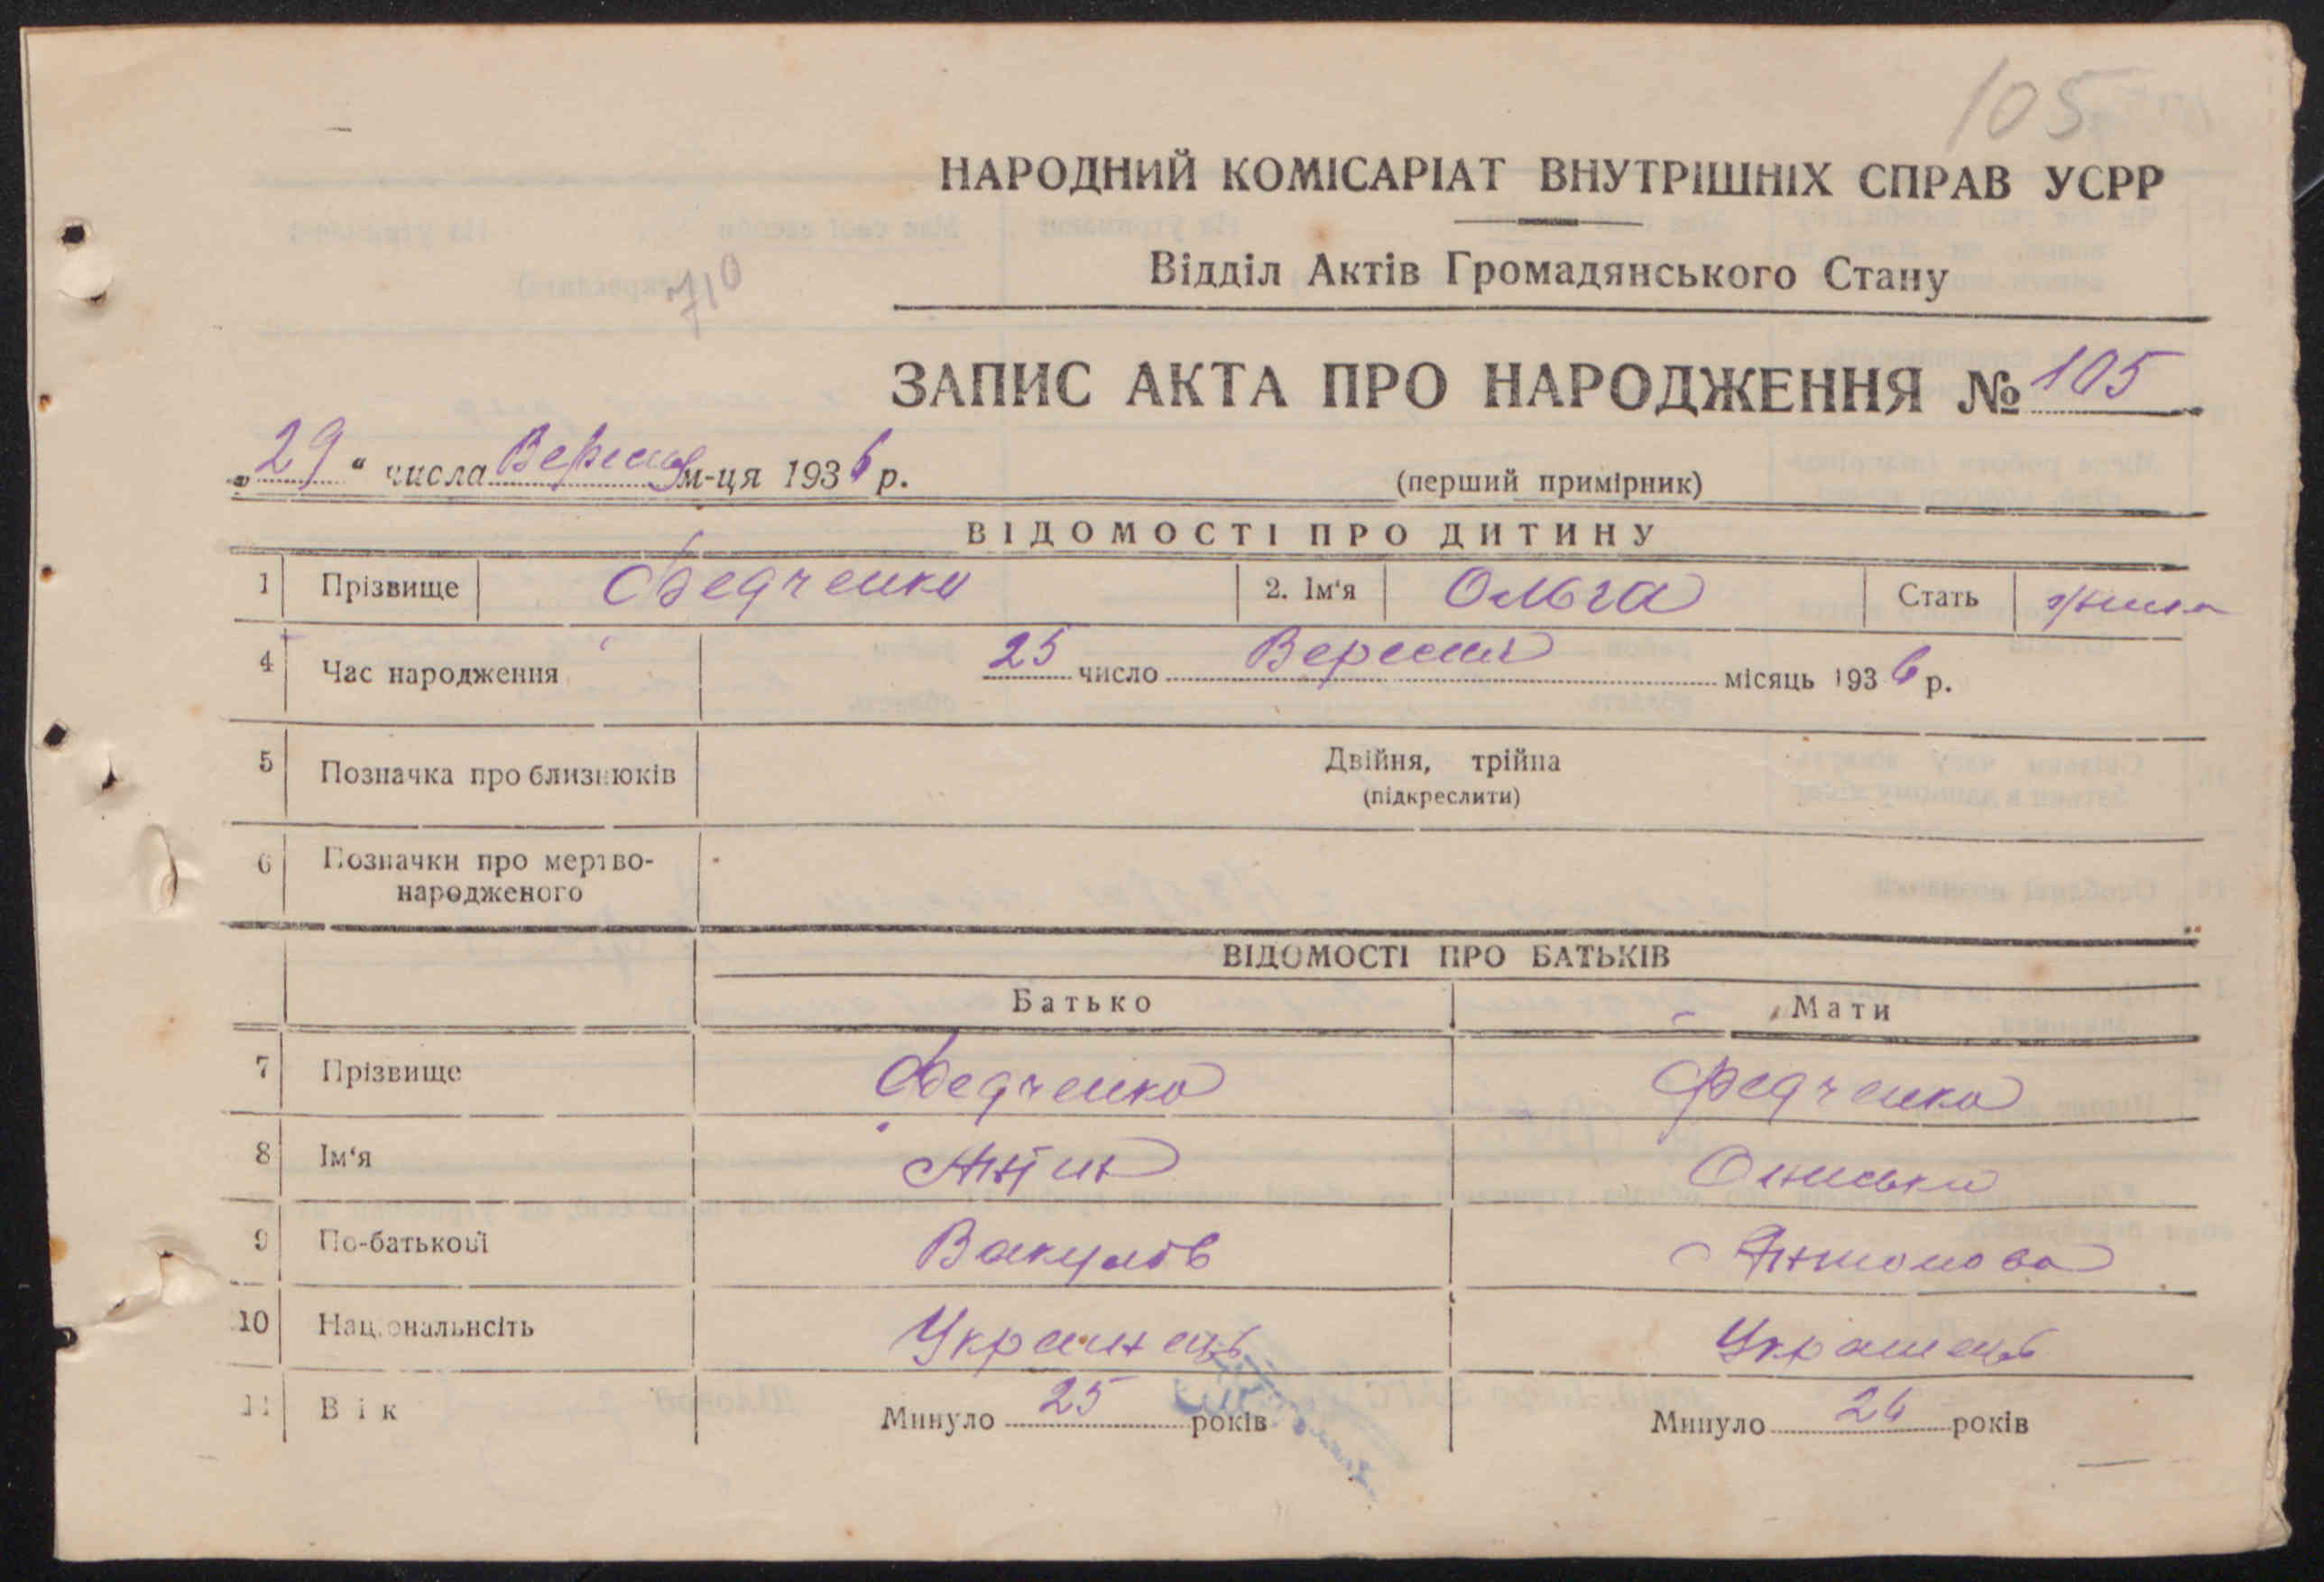 105
НАРОДНИЙ КОМІСАРІАТ ВНУТРІШНІХ СПРАВ УСРР
Відділ Актів Громадянського Стану
710
ЗАПИС АКТА ПРО НАРОДЖЕННЯ № 105
„29“ числа Вересня м-ця 1936 р.
(перший примірник)
ВІДОМОСТІ ПРО ДИТИНУ
1 Прізвище Федченко 2. Ім‘я Ольга Стать
4 Час народження 25 число Вересня місяць 1936 р.
5 Позначка про близнюків Двійня, трійна
(підкреслити)
6 Позначки про мертво-
народженого
ВІДОМОСТІ ПРО БАТЬКІВ
Батько Мати
7 Прізвище Федченко Федченко
8 Ім‘я Антін Ониська
9 По-батькові Вакулів Антонова
10 Національнсіть Украинець Украинець
11 Вік Минуло 25 років Минуло 24 років